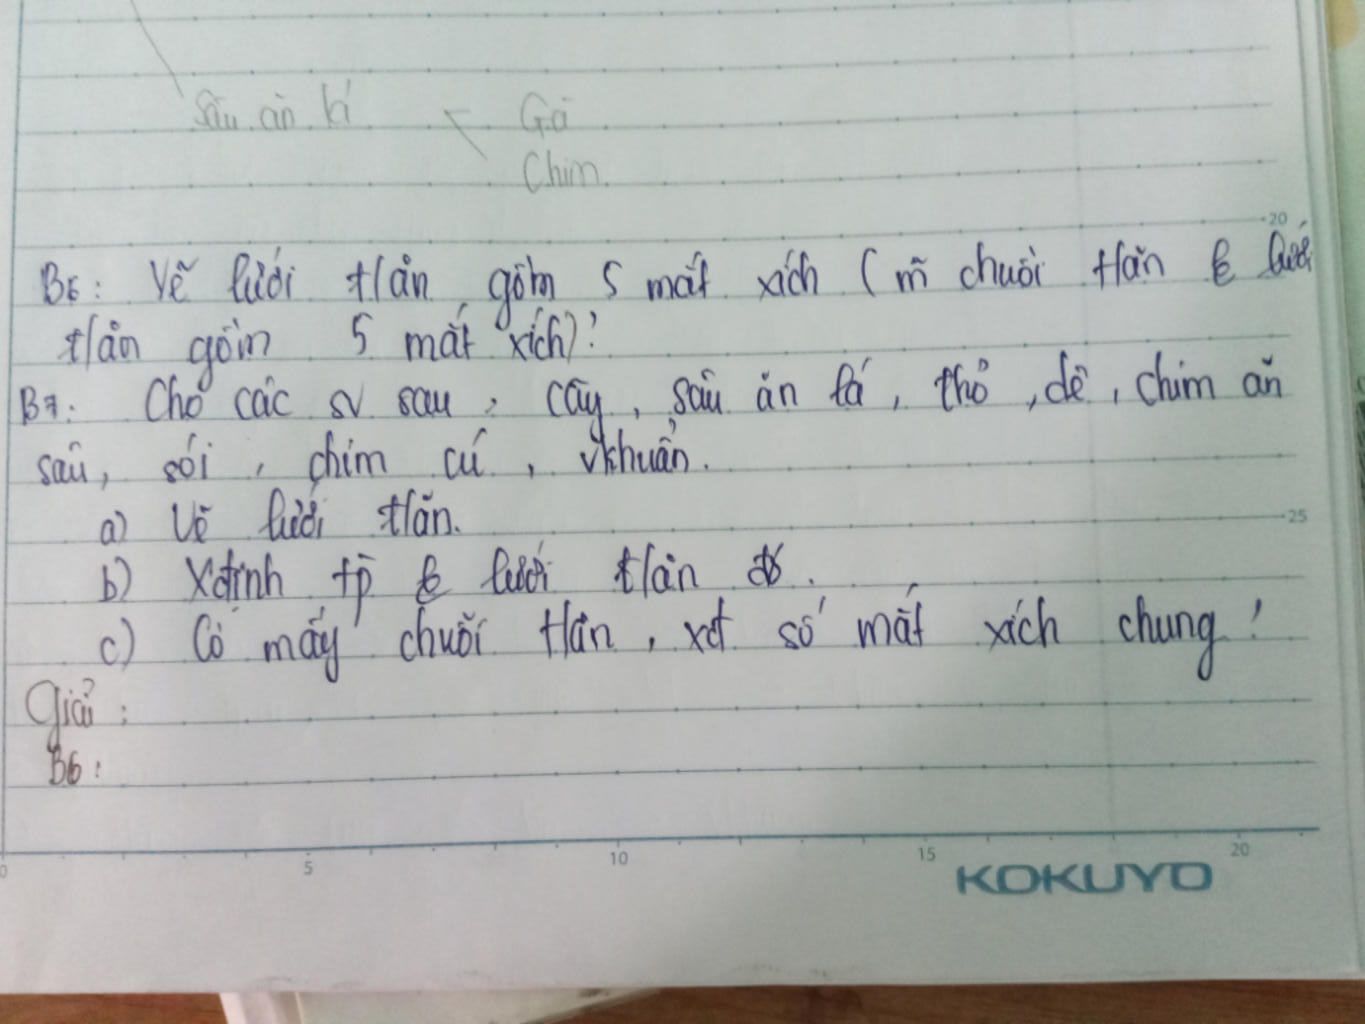 Sâu ăn lá Gà
Chim.
20
B6: Vẽ lưới t/ăn gồm 5 mắt xích (m̃ chuỗi t/ăn lưới
t/ăn gồm 5 mắt xích)?
B7: Cho các sv sau, cây, sâu ăn lá, thỏ, dê, chim ăn
sâu, sói, chim cú, vkhuẩn.
25
a) Vẽ lưới t/ăn.
b) Xđịnh tp̄ lưới t/ăn đó.
c) Có mấy chuỗi t/ăn, xđ số mắt xích chung?
Giải:
B6:
0 5 10 15 20
KOKUYO